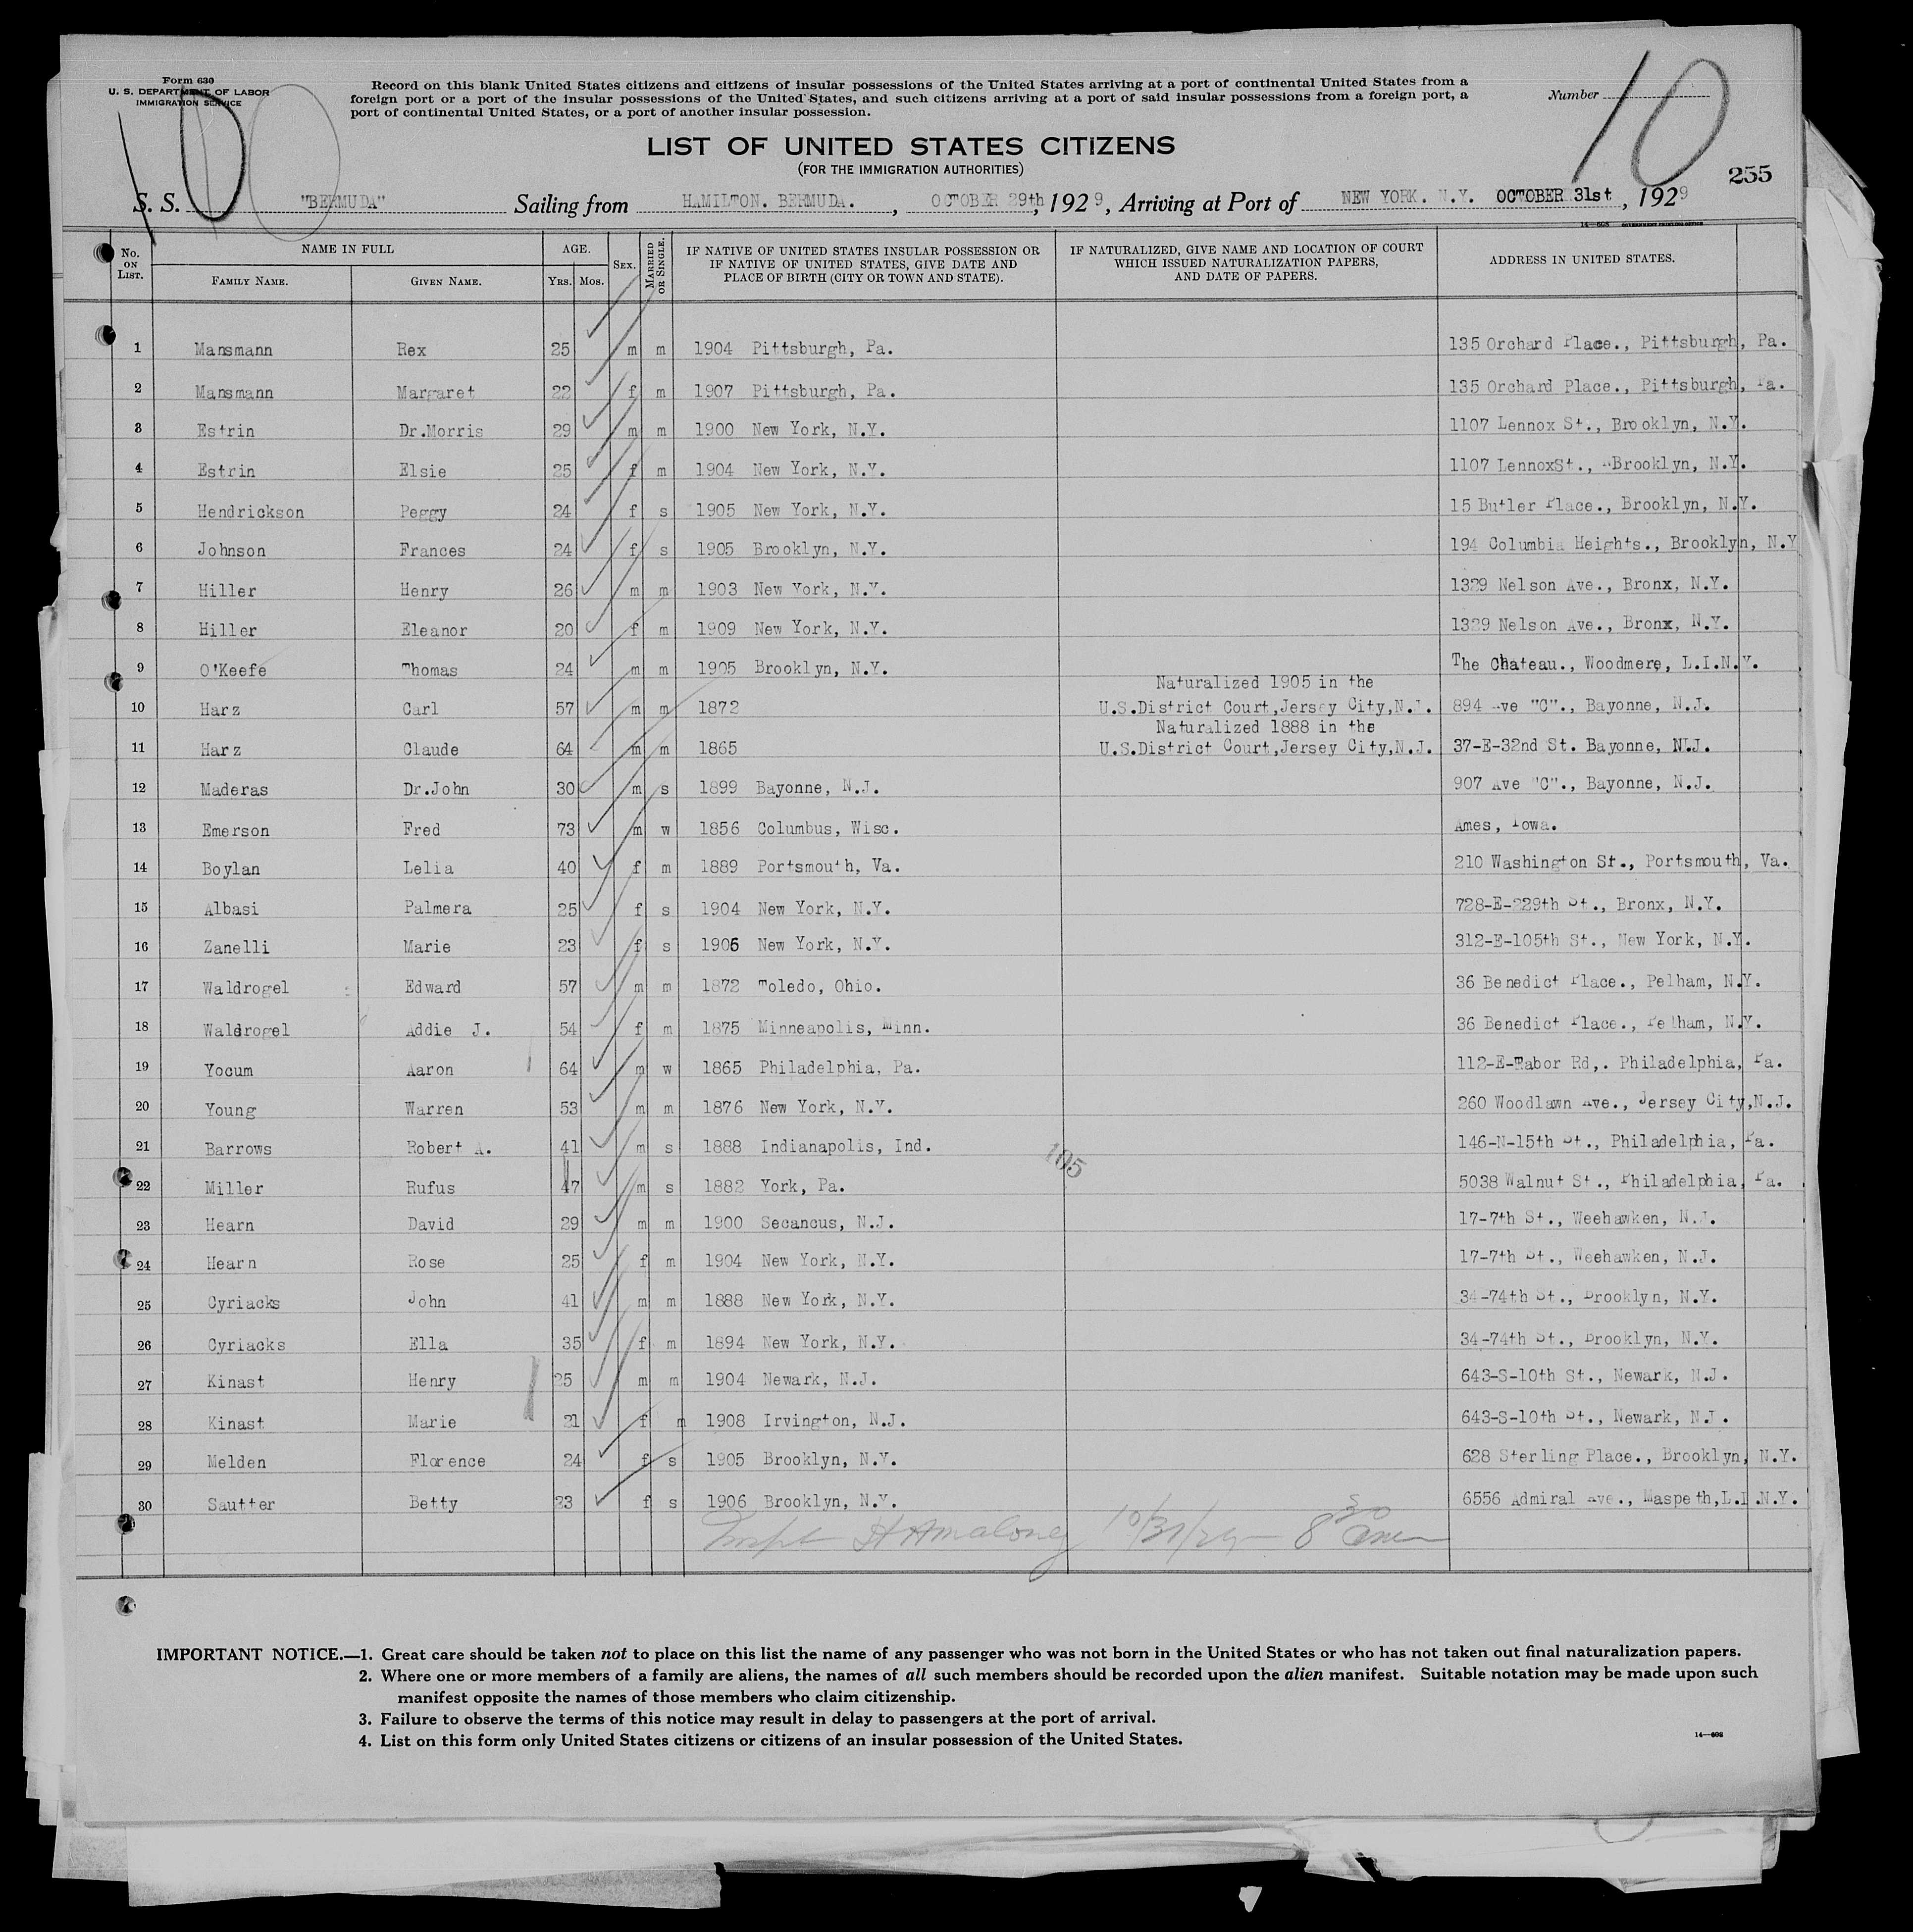 Form 630
U. S. DEPARTMENT OF LABOR
IMMIGRATION SERVICE
Record on this blank United States citizens and citizens of insular possessions of the United States arriving at a port of continental United States from a
foreign port or a port of the insular possessions of the United States, and such citizens arriving at a port of said insular possessions from a foreign port, a
port of continental United States, or a port of another insular possession.
Number 10
LIST OF UNITED STATES CITIZENS
(FOR THE IMMIGRATION AUTHORITIES)
255
S. S. "BERMUDA" Sailing from HAMILTON. BERMUDA. , OCTOBER 29th, 1929, Arriving at Port of NEW YORK. N.Y. OCTOBER 31st, 1929
14-608 GOVERNMENT PRINTING OFFICE
No. ON LIST. NAME IN FULL FAMILY NAME. GIVEN NAME. AGE. YRS. MOS. SEX. MARRIED OR SINGLE. IF NATIVE OF UNITED STATES INSULAR POSSESSION OR IF NATIVE OF UNITED STATES, GIVE DATE AND PLACE OF BIRTH (CITY OR TOWN AND STATE). IF NATURALIZED, GIVE NAME AND LOCATION OF COURT WHICH ISSUED NATURALIZATION PAPERS, AND DATE OF PAPERS. ADDRESS IN UNITED STATES.
1 Mansmann Rex 25 m m 1904 Pittsburgh, Pa. 135 Orchard Place., Pittsburgh, Pa.
2 Mansmann Margaret 22 f m 1907 Pittsburgh, Pa. 135 Orchard Place., Pittsburgh, Pa.
3 Estrin Dr.Morris 29 m m 1900 New York, N.Y. 1107 Lennox St., Brooklyn, N.Y.
4 Estrin Elsie 25 f m 1904 New York, N.Y. 1107 LennoxSt., Brooklyn, N.Y.
5 Hendrickson Peggy 24 f s 1905 New York, N.Y. 15 Butler Place., Brooklyn, N.Y.
6 Johnson Frances 24 f s 1905 Brooklyn, N.Y. 194 Columbia Heights., Brooklyn, N.Y
7 Hiller Henry 26 m m 1903 New York, N.Y. 1329 Nelson Ave., Bronx, N.Y.
8 Hiller Eleanor 20 f m 1909 New York, N.Y. 1329 Nelson Ave., Bronx, N.Y.
9 O'Keefe Thomas 24 m m 1905 Brooklyn, N.Y. The Chateau., Woodmere, L.I.N.Y.
Naturalized 1905 in the
10 Harz Carl 57 m m 1872 U.S.District Court,Jersey City,N.J. 894 Ave "C"., Bayonne, N.J.
Naturalized 1888 in the
11 Harz Claude 64 m m 1865 U.S.District Court,Jersey City,N.J. 37-E-32nd St. Bayonne, N.J.
12 Maderas Dr.John 30 m s 1899 Bayonne, N.J. 907 Ave "C"., Bayonne, N.J.
13 Emerson Fred 73 m w 1856 Columbus, Wisc. Ames, Iowa.
14 Boylan Lelia 40 f m 1889 Portsmouth, Va. 210 Washington St., Portsmouth, Va.
15 Albasi Palmera 25 f s 1904 New York, N.Y. 728-E-229th St., Bronx, N.Y.
16 Zanelli Marie 23 f s 1906 New York, N.Y. 312-E-105th St., New York, N.Y.
17 Waldrogel Edward 57 m m 1872 Toledo, Ohio. 36 Benedict Place., Pelham, N.Y.
18 Waldrogel Addie J. 54 f m 1875 Minneapolis, Minn. 36 Benedict Place., Pelham, N.Y.
19 Yocum Aaron 64 m w 1865 Philadelphia, Pa. 112-E-Tabor Rd,. Philadelphia, Pa.
20 Young Warren 53 m m 1876 New York, N.Y. 260 Woodlawn Ave., Jersey City,N.J.
21 Barrows Robert A. 41 m s 1888 Indianapolis, Ind. 146-N-15th St., Philadelphia, Pa.
105
22 Miller Rufus 47 m s 1882 York, Pa. 5038 Walnut St., Philadelphia, Pa.
23 Hearn David 29 m m 1900 Secancus, N.J. 17-7th St., Weehawken, N.J.
24 Hearn Rose 25 f m 1904 New York, N.Y. 17-7th St., Weehawken, N.J.
25 Cyriacks John 41 m m 1888 New York, N.Y. 34-74th St., Brooklyn, N.Y.
26 Cyriacks Ella 35 f m 1894 New York, N.Y. 34-74th St., Brooklyn, N.Y.
27 Kinast Henry 25 m m 1904 Newark, N.J. 643-S-10th St., Newark, N.J.
28 Kinast Marie 21 f m 1908 Irvington, N.J. 643-S-10th St., Newark, N.J.
29 Melden Florence 24 f s 1905 Brooklyn, N.Y. 628 Sterling Place., Brooklyn, N.Y.
30 Sautter Betty 23 f s 1906 Brooklyn, N.Y. 6556 Admiral Ave., Maspeth,L.I.N.Y.
10/31/29 - 8 30
IMPORTANT NOTICE.—1. Great care should be taken not to place on this list the name of any passenger who was not born in the United States or who has not taken out final naturalization papers.
2. Where one or more members of a family are aliens, the names of all such members should be recorded upon the alien manifest. Suitable notation may be made upon such
manifest opposite the names of those members who claim citizenship.
3. Failure to observe the terms of this notice may result in delay to passengers at the port of arrival.
4. List on this form only United States citizens or citizens of an insular possession of the United States.
14—608